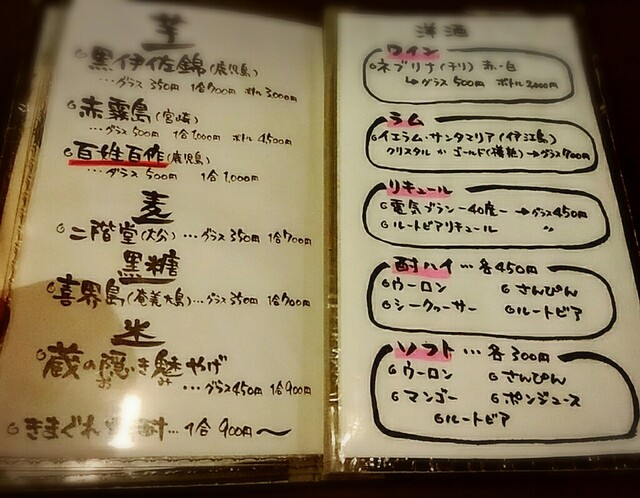 芋
黒伊佐錦(鹿児島)
…グラス 350円 1合700円 ボトル 3,000
赤霧島(宮崎)
…グラス 500円 1合1,000円 ボトル 4,500
百姓百作(鹿児島)
…グラス 500円 1合 1,000円
麦
二階堂(大分)…グラス350円 1合700
黒糖
喜界島(奄美大島)…グラス350円 1合700
米
蔵の隠し魅やげ
…グラス450円 1合900円
きまぐれ 酎…1合 900円〜
洋酒
ワイン
ネブリナ(チリ) 赤・白
↳グラス 500円 ボトル 2,000円
ラム
イエラム・サンタマリア(伊江島)
クリスタル か ゴールド(樽熟)→グラス700円
リキュール
電気ブラン-40度-→グラス450円
ルートビアリキュール 〃
酎ハイ…各450円
ウーロン さんぴん
シークヮーサー ルートビア
ソフト…各300円
ウーロン さんぴん
マンゴー ポンジュース
ルートビア